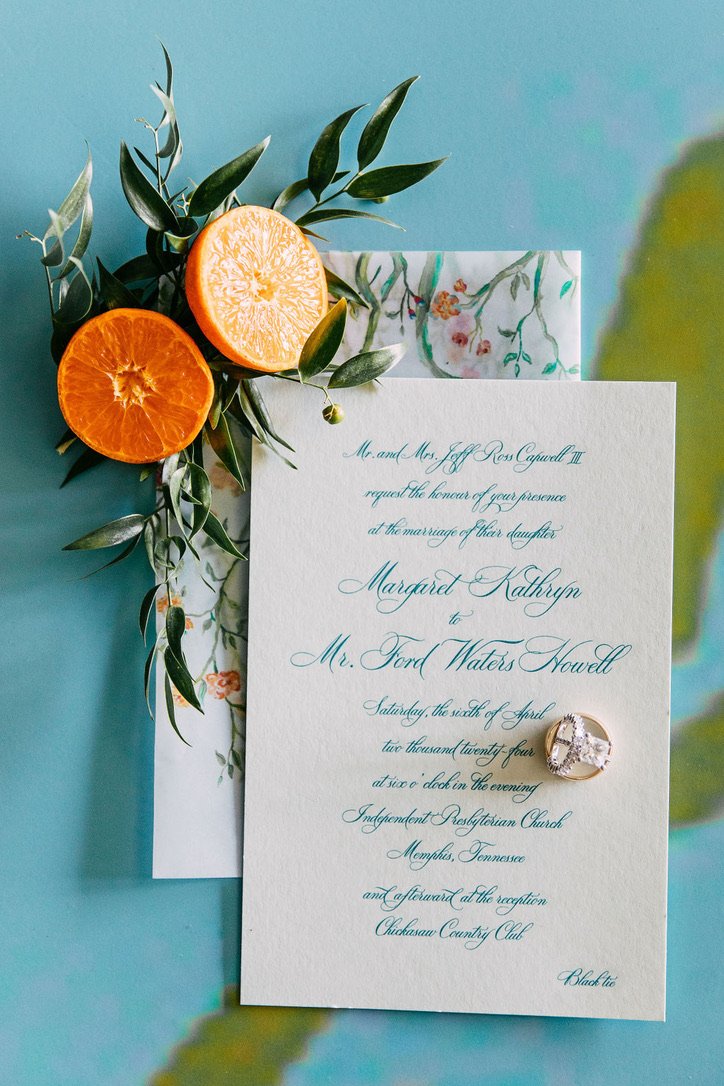 Mr. and Mrs. Jeff Ross Capwell III
request the honour of your presence
at the marriage of their daughter
Margaret Kathryn
to
Mr. Ford Waters Howell
Saturday, the sixth of April
two thousand twenty-four
at six o' clock in the evening
Independent Presbyterian Church
Memphis, Tennessee
and afterward at the reception
Chickasaw Country Club
Black tie